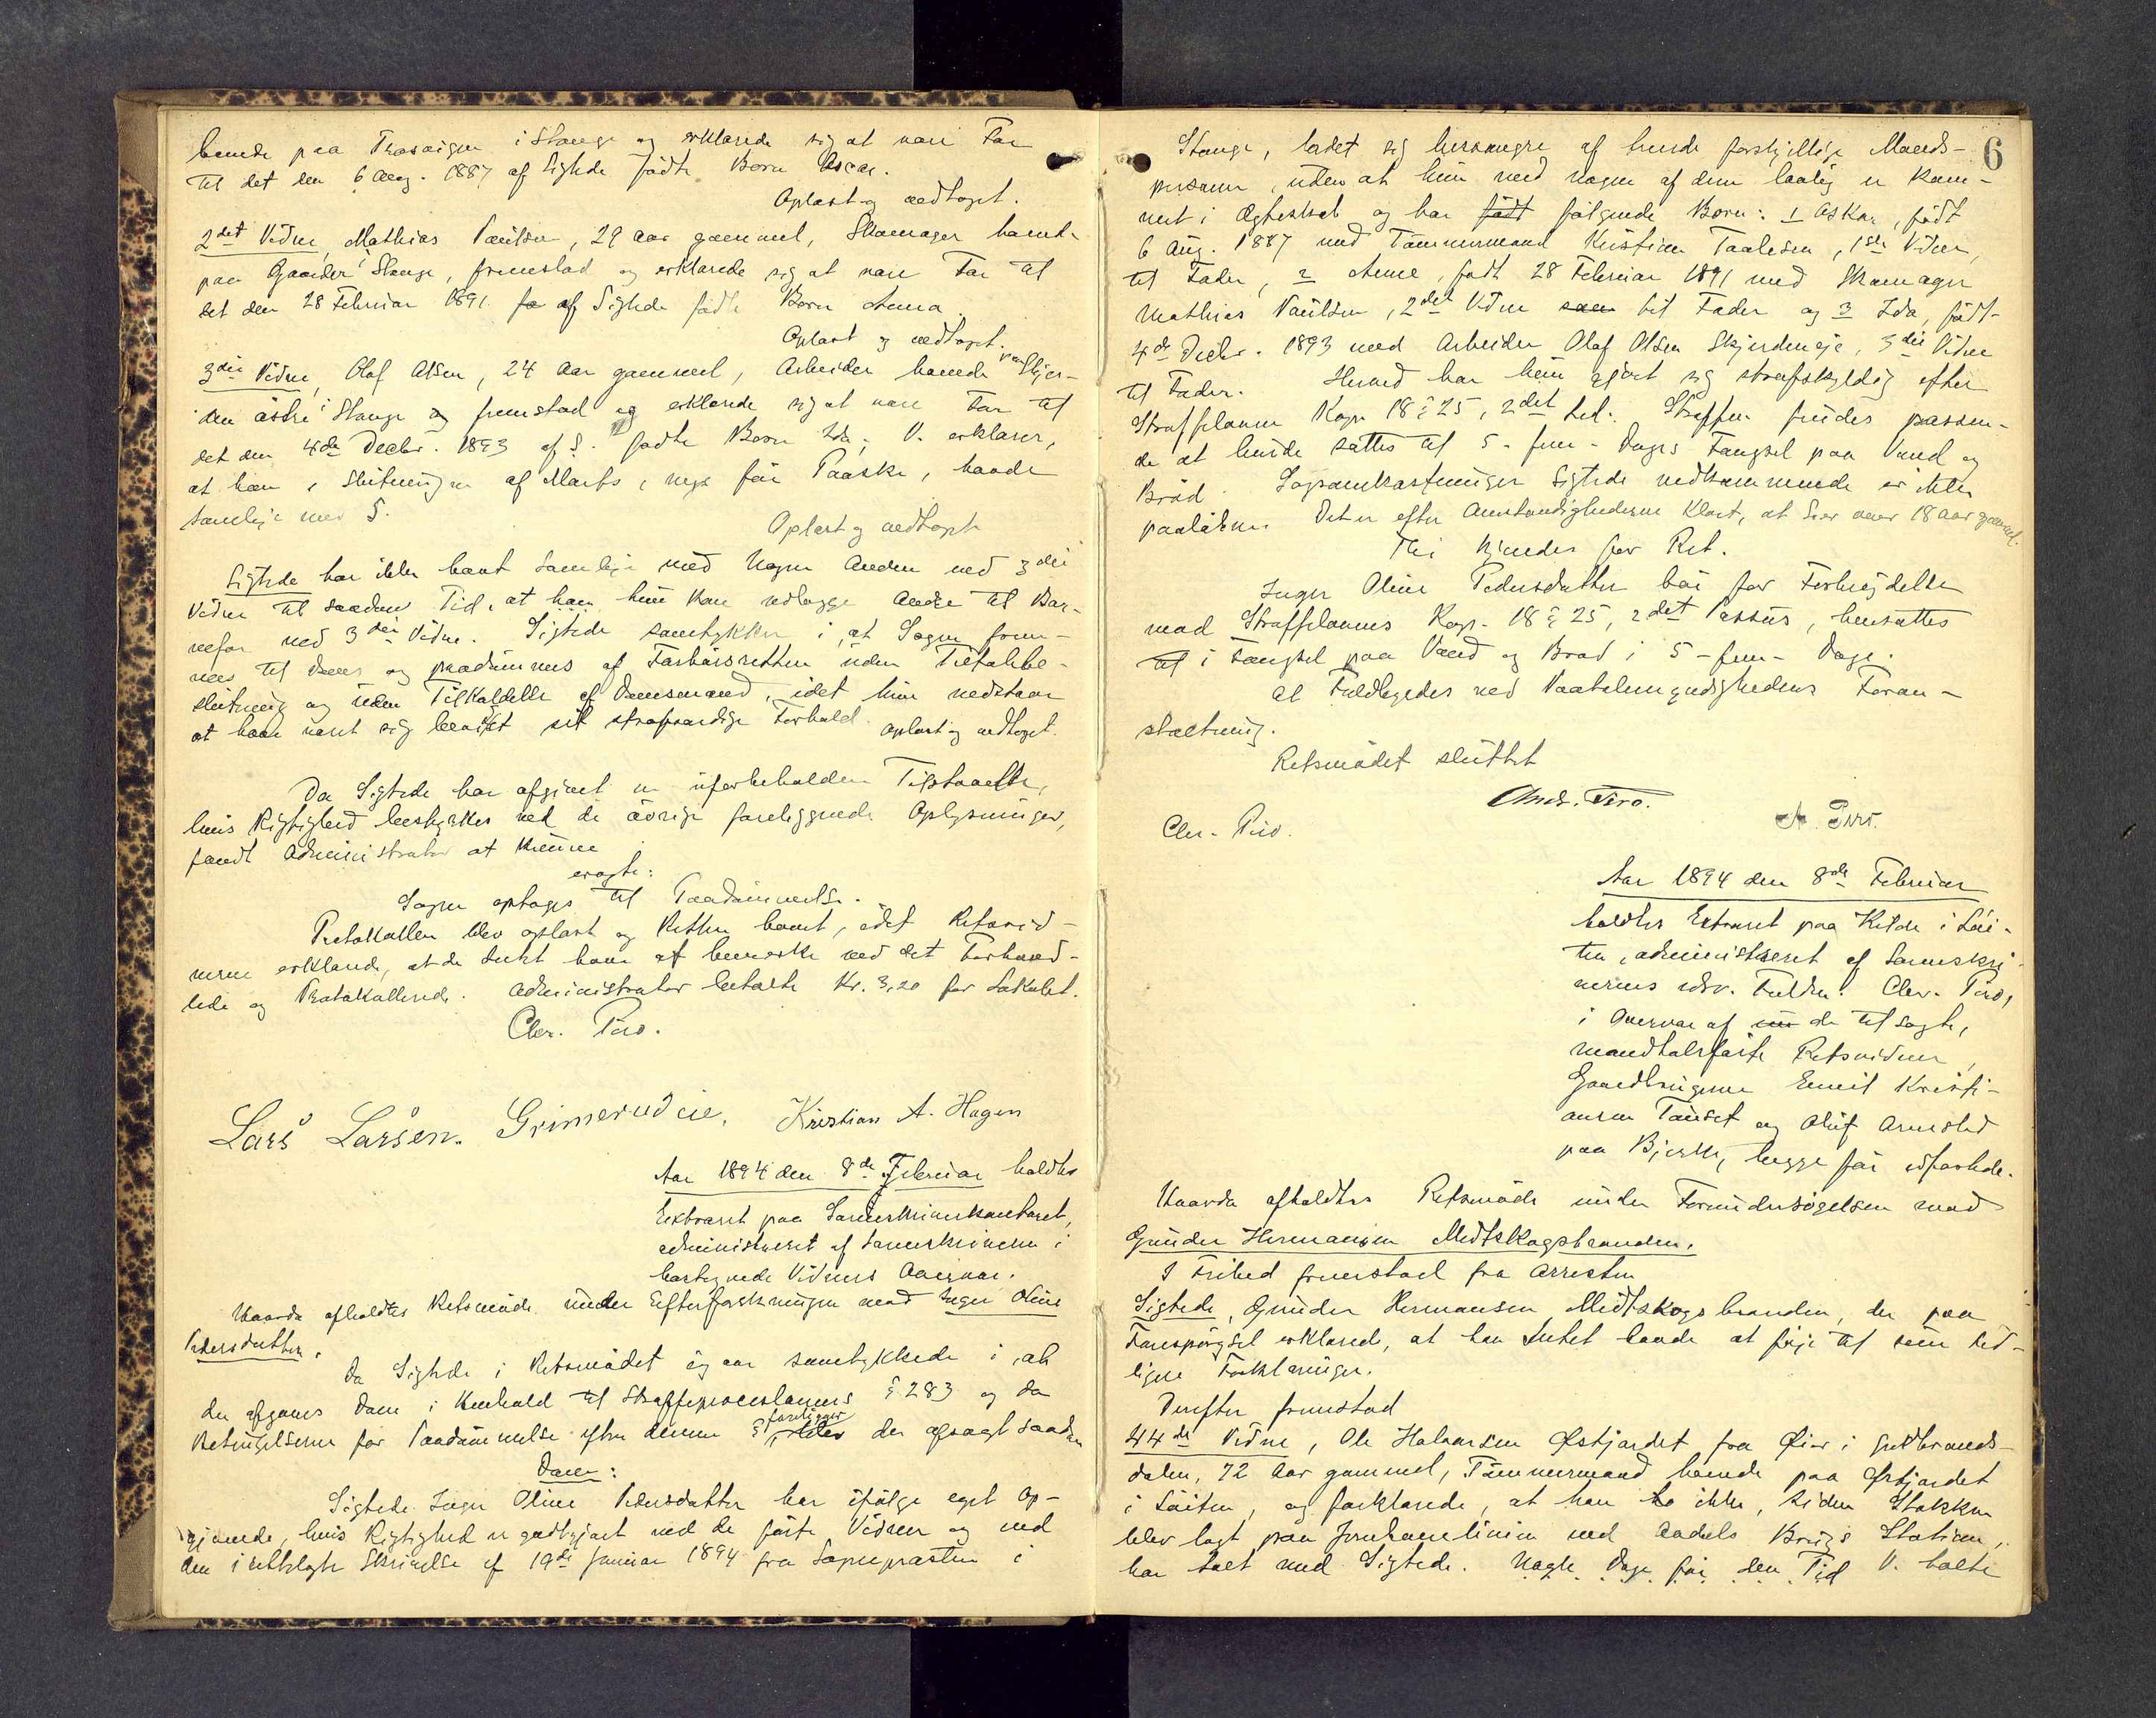 boende paa Trosvigen i Stange og erklærede sig at være Far
til det den 6 Aug. 1887 af Sigtede fødte Barn Oscar.
Oplæst og vedtaget.
2det Vidne, Mathias Paulsen, 29 Aar gammel, Skomager boende
paa Gaarder i Stange, fremstod og erklærede sig at være Far til
det den 28 Februar 1891 fø af Sigtede fødte Barn Anna.
Oplæst og vedtaget.
3die Vidne, Olaf Olsen, 24 Aar gammel, Arbeider boende paa Skjer-
den østre i Stange og fremstod og erklærede sig at være Far til
det den 4de Decbr. 1893 af S. fødte Barn Ida. V. erklærer,
at han i Slutningen af Marts, nys før Paaske, havde
samleje med S.
Oplæst og vedtaget
Sigtede har ikke havt Samleje med nogen Anden end 3die
Vidne til saadan Tid, at hun kan udlægge Andre til Bar-
nefar end 3die Vidne. Sigtede samtykker i, at Sagen frem-
mes til Doms og paadømmes af Forhørsretten uden Tiltalebe-
slutning og uden Tilkaldelse af Domsmænd, idet hun vedstaar
at have været sig bevidst sit strafværdige Forhold. Oplæst og vedtaget.
Da Sigtede har afgivet en uforbeholden Tilstaaelse,
hvis Rigtighed bestyrkes ved de øvrige foreliggende Oplysninger,
fandt Administrator at kunne
eragte:
Sagen optages til Paadømmelse.
Protokollen blev oplæst og Retten hævet, idet Retsvid-
nerne erklærede, at de Intet have at bemærke ved det Forhand-
lede og Protokollerede. Administrator betalte Kr. 3,20 for Lokalet.
Chr. Piro.
Lars Larsen. Grimerudeie, Kristian A. Hagen
Aar 1894 den 8de Februar holdtes
Extraret paa Sorenskriverkontoret,
administreret af Sorenskriveren i
hostegnede Vidners Overvær.
Hvorda afholdtes Retsmøde under Efterforskningen mod Inger Oline
Pedersdatter.
Da Sigtede i Retsmødet igaar samtykkede i, at
der afgaves Dom i Henhold til Straffeproceslovens § 283 og da
Betingelserne for Paadømmelse efter denne § foreligger blev der afsagt saadan
Dom:
Sigtede Inger Oline Pedersdatter har ifølge eget Op-
givende, hvis Rigtighed er godtgjort ved de førte Vidner og ved
den i Retten fremlagte Skrivelse af 19de Januar 1894 fra Sognepræsten i
6
Stange, ladet sig besvangre af trende forskjellige Mands-
personer, uden at hun med nogen af dem lovlig er kom-
met i Ægteskab og har født følgende Børn: 1 Oskar, født
6 Aug. 1887 med Tømmermand Kristian Paalesen, 1ste Vidne,
til Fader, 2 Anna, født 28 Februar 1891 med Skomager
Mathias Paulsen, 2det Vidne som til Fader og 3 Ida, født
4de Decbr. 1893 med Arbeider Olaf Olsen Skjerdeneje, 3die Vidne
til Fader. Herved har hun gjort sig strafskyldig efter
Straffelovens Kap. 18 § 25, 2det Led. Straffen findes passen-
de at burde sættes til 5 - fem - Dages Fængsel paa Vand og
Brød. Sagsomkostninger Sigtede vedkommende er ikke
paaløbne. Det er efter Omstændighederne klart, at S. er over 18 Aar gammel.
Thi kjendes for Ret.
Inger Oline Pedersdatter bør for Forbrydelse
mod Straffelovens Kap. 18 § 25, 2det Passus, hensættes
til i Fængsel paa Vand og Brød i 5 - fem - Dage.
At Fuldbyrdes ved Paatalemyndighedens Foran-
staltning.
Retsmødet sluttet
Chr. Piro. Andr. Piro. A. Piro.
Aar 1894 den 8de Februar
holdtes Extraret paa Kilde i Løi-
ten, administreret af Sorenskri-
verens edsv. Fuldm. Chr. Piro,
i Overvær af de tilsagte,
mandtalsførte Retsvidner,
Gaardbrugerne Emil Kristi-
ansen Tønset og Oluf Arnesled
paa Bjerke, begge før edfæstede.
Hvorda afholdtes Retsmøde under Forundersøgelsen mod
Gunder Hermansen Midtskogsbranden.
I Frihed fremstod fra Arresten
Sigtede, Gunder Hermansen Midtskogsbranden, der paa
Forespørgsel erklærede, at han Intet havde at føje til sine tid-
ligere Forklaringer.
Derefter fremstod
44de Vidne, Ole Halvorsen Østjordet fra Øier i Gudbrands-
dalen, 72 Aar gammel, Tømmermand boende paa Østjordet
i Løiten, og forklarede, at han ikke, siden Stokken
blev lagt paa Jernbanelinien ved Aadals Brugs Station,
har talt med Sigtede. Nogle Dage før den Tid V. holdte